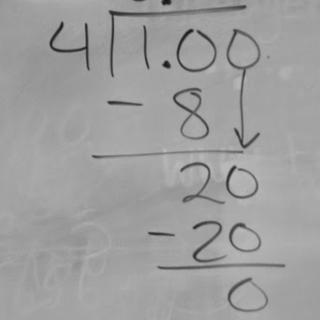 4 1.00
- 8
20
- 20
0